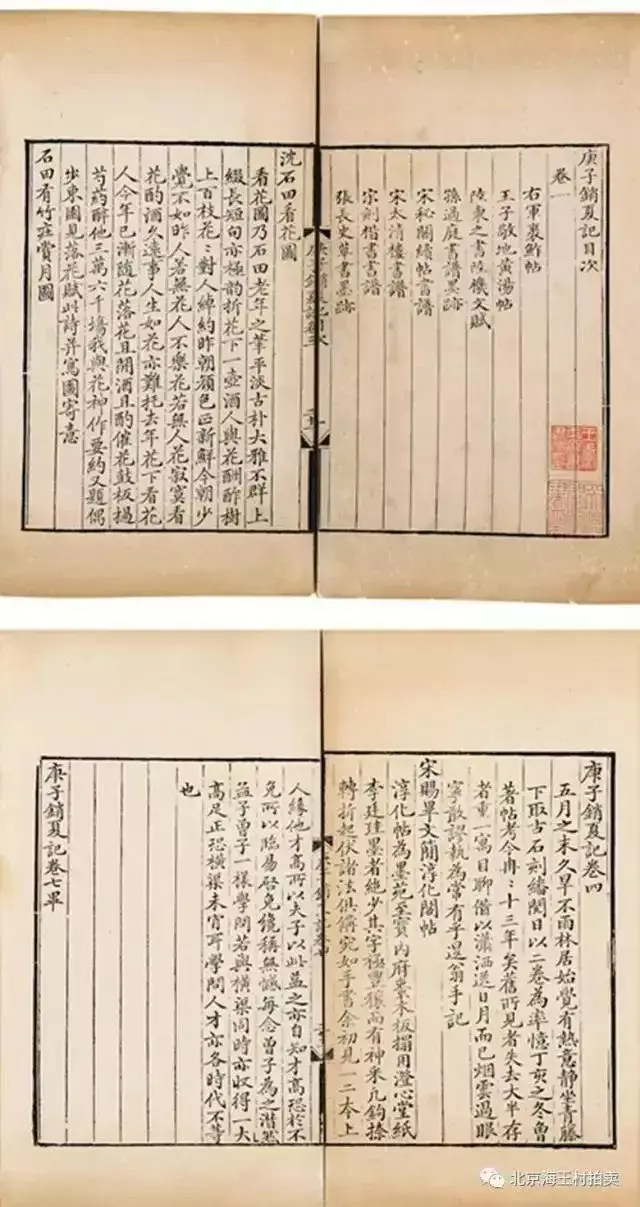 庚子銷夏記目次
卷一
右軍裹鮓帖
王子敬地黃湯帖
陸柬之書陸機文賦
孫過庭書譜墨跡
宋秘閣續帖書譜
宋太清樓書譜
宋刻楷書書譜
張長史草書墨跡
沈石田看花圖
看花圖乃石田老年之筆平淡古朴大雅不群上
綴長短句亦極韵折花下一壺酒人與花酬酢樹
上百枝花〻對人婥約昨朝顏色正新鮮今朝少
覺不如昨人若無花人不樂花若無人花寂寞看
花酌酒久遠事人生如花亦難托去年花下看花
人今年已漸隨花落花且開酒且酌催花鼓板撾
芍葯醉他三萬六千塲我與花神作要約又題偶
步東園見落花賦此詩并寫圖寄意
石田看竹庄賞月圖
庚子銷夏記卷四
五月之末久旱不雨林居始覺有熱意静坐青藤
下取古石刻繙閱日以二卷為率憶丁亥之冬曾
著帖考今冉〻十三年矣舊所見者失去大半存
者重一寓目聊借以瀟洒送日月而已烟雲過眼
寧敢謬執為常有乎退翁手記
宋賜畢文簡淳化閣帖
淳化帖為墨苑至寳内府棗木板搨用澄心堂紙
李廷珪墨者絶少其字極豐穠而有神采凡鈎捺
轉折起伏諸法俱備宛如手書余初見一二本上
人緣他才高所以夫子以此益之亦自知才高恐於不
免所以臨易啓免纔稱無憾每念曾子為之潸然
孟子曾子一樣學問若與橫渠同時亦收得一大
高足正恐橫渠未肯耳學問人才亦各時代不等
也
庚子銷夏記卷七畢
北京海王村拍卖